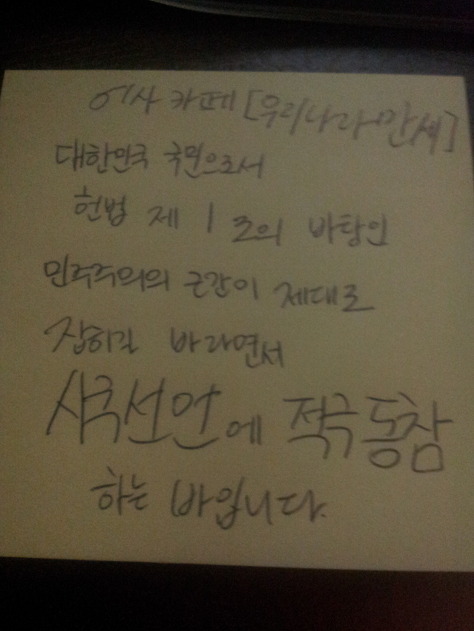 역사 카페 [우리나라만세]
대한민국 국민으로서
헌법 제 1 조의 바탕인
민주주의의 근간이 제대로
잡히길 바라면서
시국선언에 적극 동참
하는 바입니다.